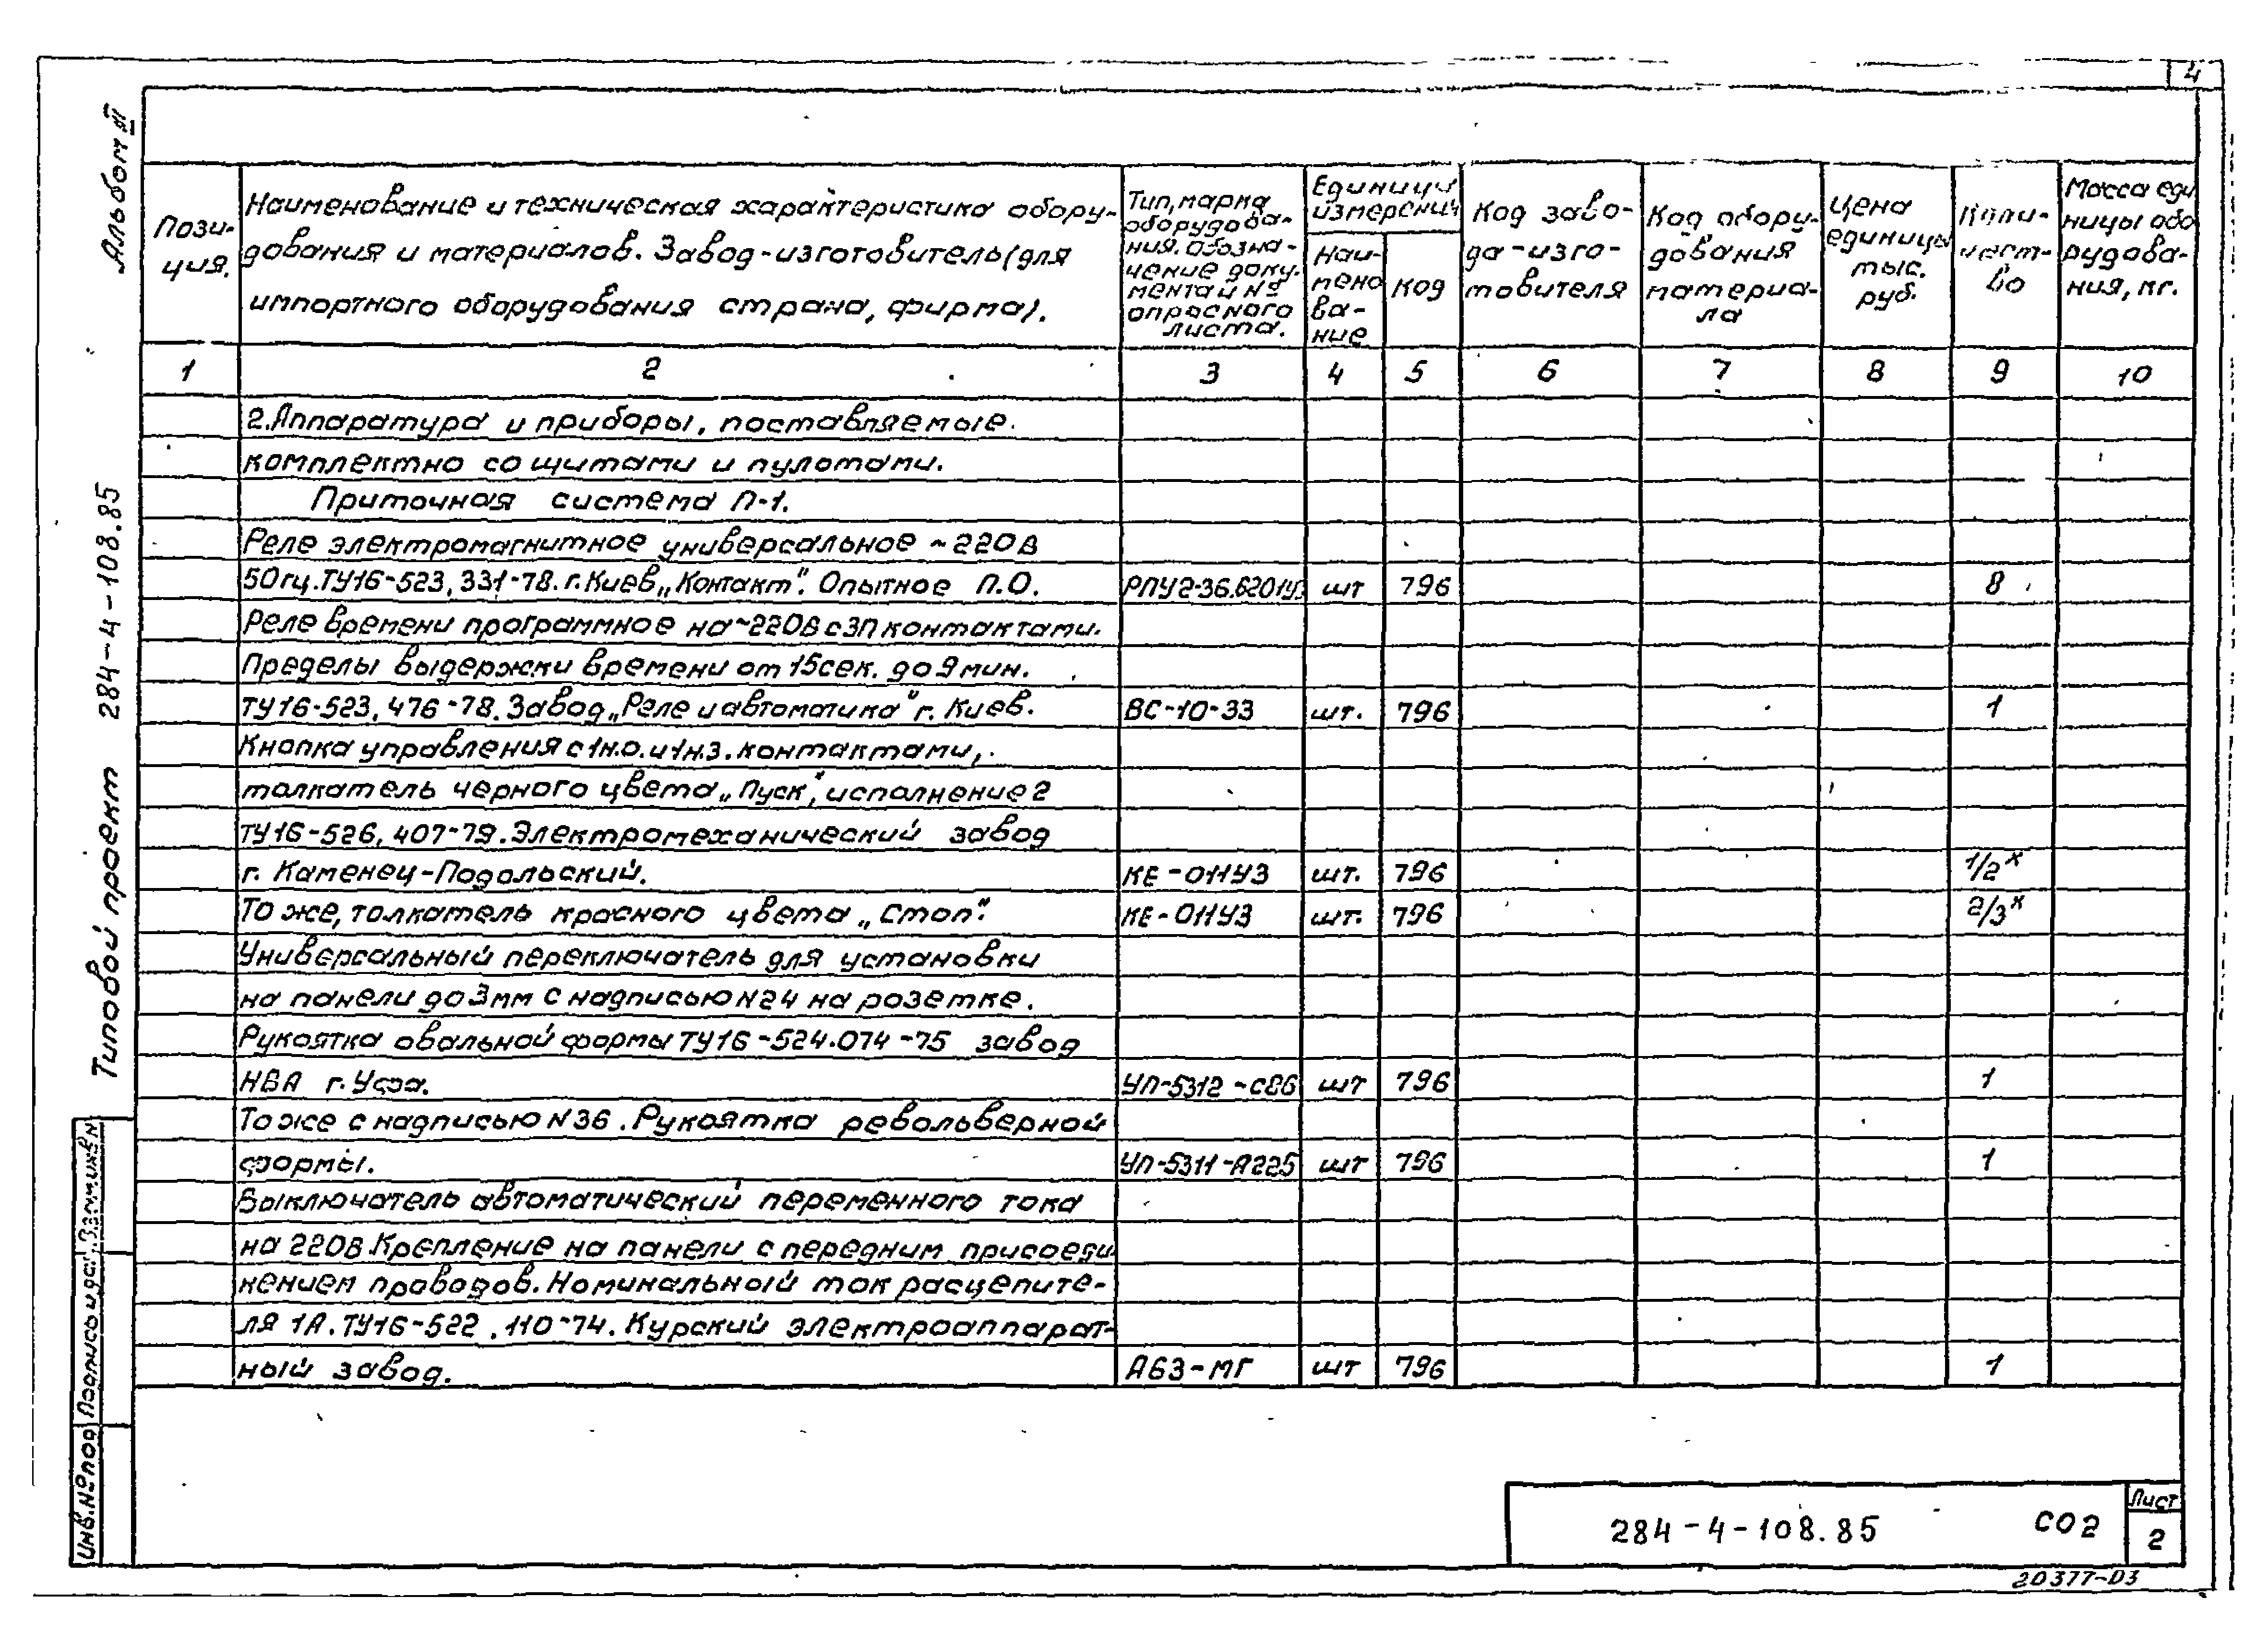 4
Альбом III
Типовой проект 284-4-108.85
Пози-
ция.
Наименование и техническая характеристика обору-
дования и материалов. Завод-изготовитель (для
импортного оборудования страна, фирма).
Тип, марка
оборудова-
ния. обозна-
чение доку-
мента и №
опросного
листа.
Единицы
измерения
Наи-
мено
ва-
ние
Код
Код заво-
да-изго-
товителя
Код обору-
дования
материа-
ла
Цена
единицы
тыс.
руб.
Коли-
чест-
во
Масса еди
ницы обо
рудова-
ния, кг.
1 2 3 4 5 6 7 8 9 10
2. Аппаратура и приборы, поставляемые
комплектно со щитами и пультами.
Приточная система П-1.
Реле электромагнитное универсальное ~220В
50гц. ТУ16-523,331-78. г. Киев „Контакт". Опытное П.О. РПУ2-36.6201У3 шт 796 8
Реле времени программное на ~220В с 3П контактами.
Пределы выдержки времени от 15 сек. до 9 мин.
ТУ16-523,476-78. Завод „Реле и автоматика" г. Киев. ВС-10-33 шт. 796 1
Кнопка управления с 1н.о. и 1н.з. контактами,
толкатель черного цвета „Пуск", исполнение 2
ТУ16-526,407-79. Электромеханический завод
г. Каменец-Подольский. КЕ-011У3 шт. 796 1/2*
То же, толкатель красного цвета „Стоп". КЕ-011У3 шт. 796 2/3*
Универсальный переключатель для установки
на панели до 3мм с надписью N24 на розетке.
Рукоятка овальной формы ТУ16-524.074-75 завод
НВА г. Уфа. УП-5312-С86 шт 796 1
То же с надписью N36. Рукоятка револьверной
формы. УП-5311-А225 шт 796 1
Выключатель автоматический переменного тока
на 220В. Крепление на панели с передним присоеди
нением проводов. Номинальный ток расцепите-
ля 1А. ТУ16-522.110-74. Курский электроаппарат-
ный завод. А63-МГ шт 796 1
Инв.№под Подпись и дат Взам.инв N
284-4-108.85 СО2
Лист
2
20377-03